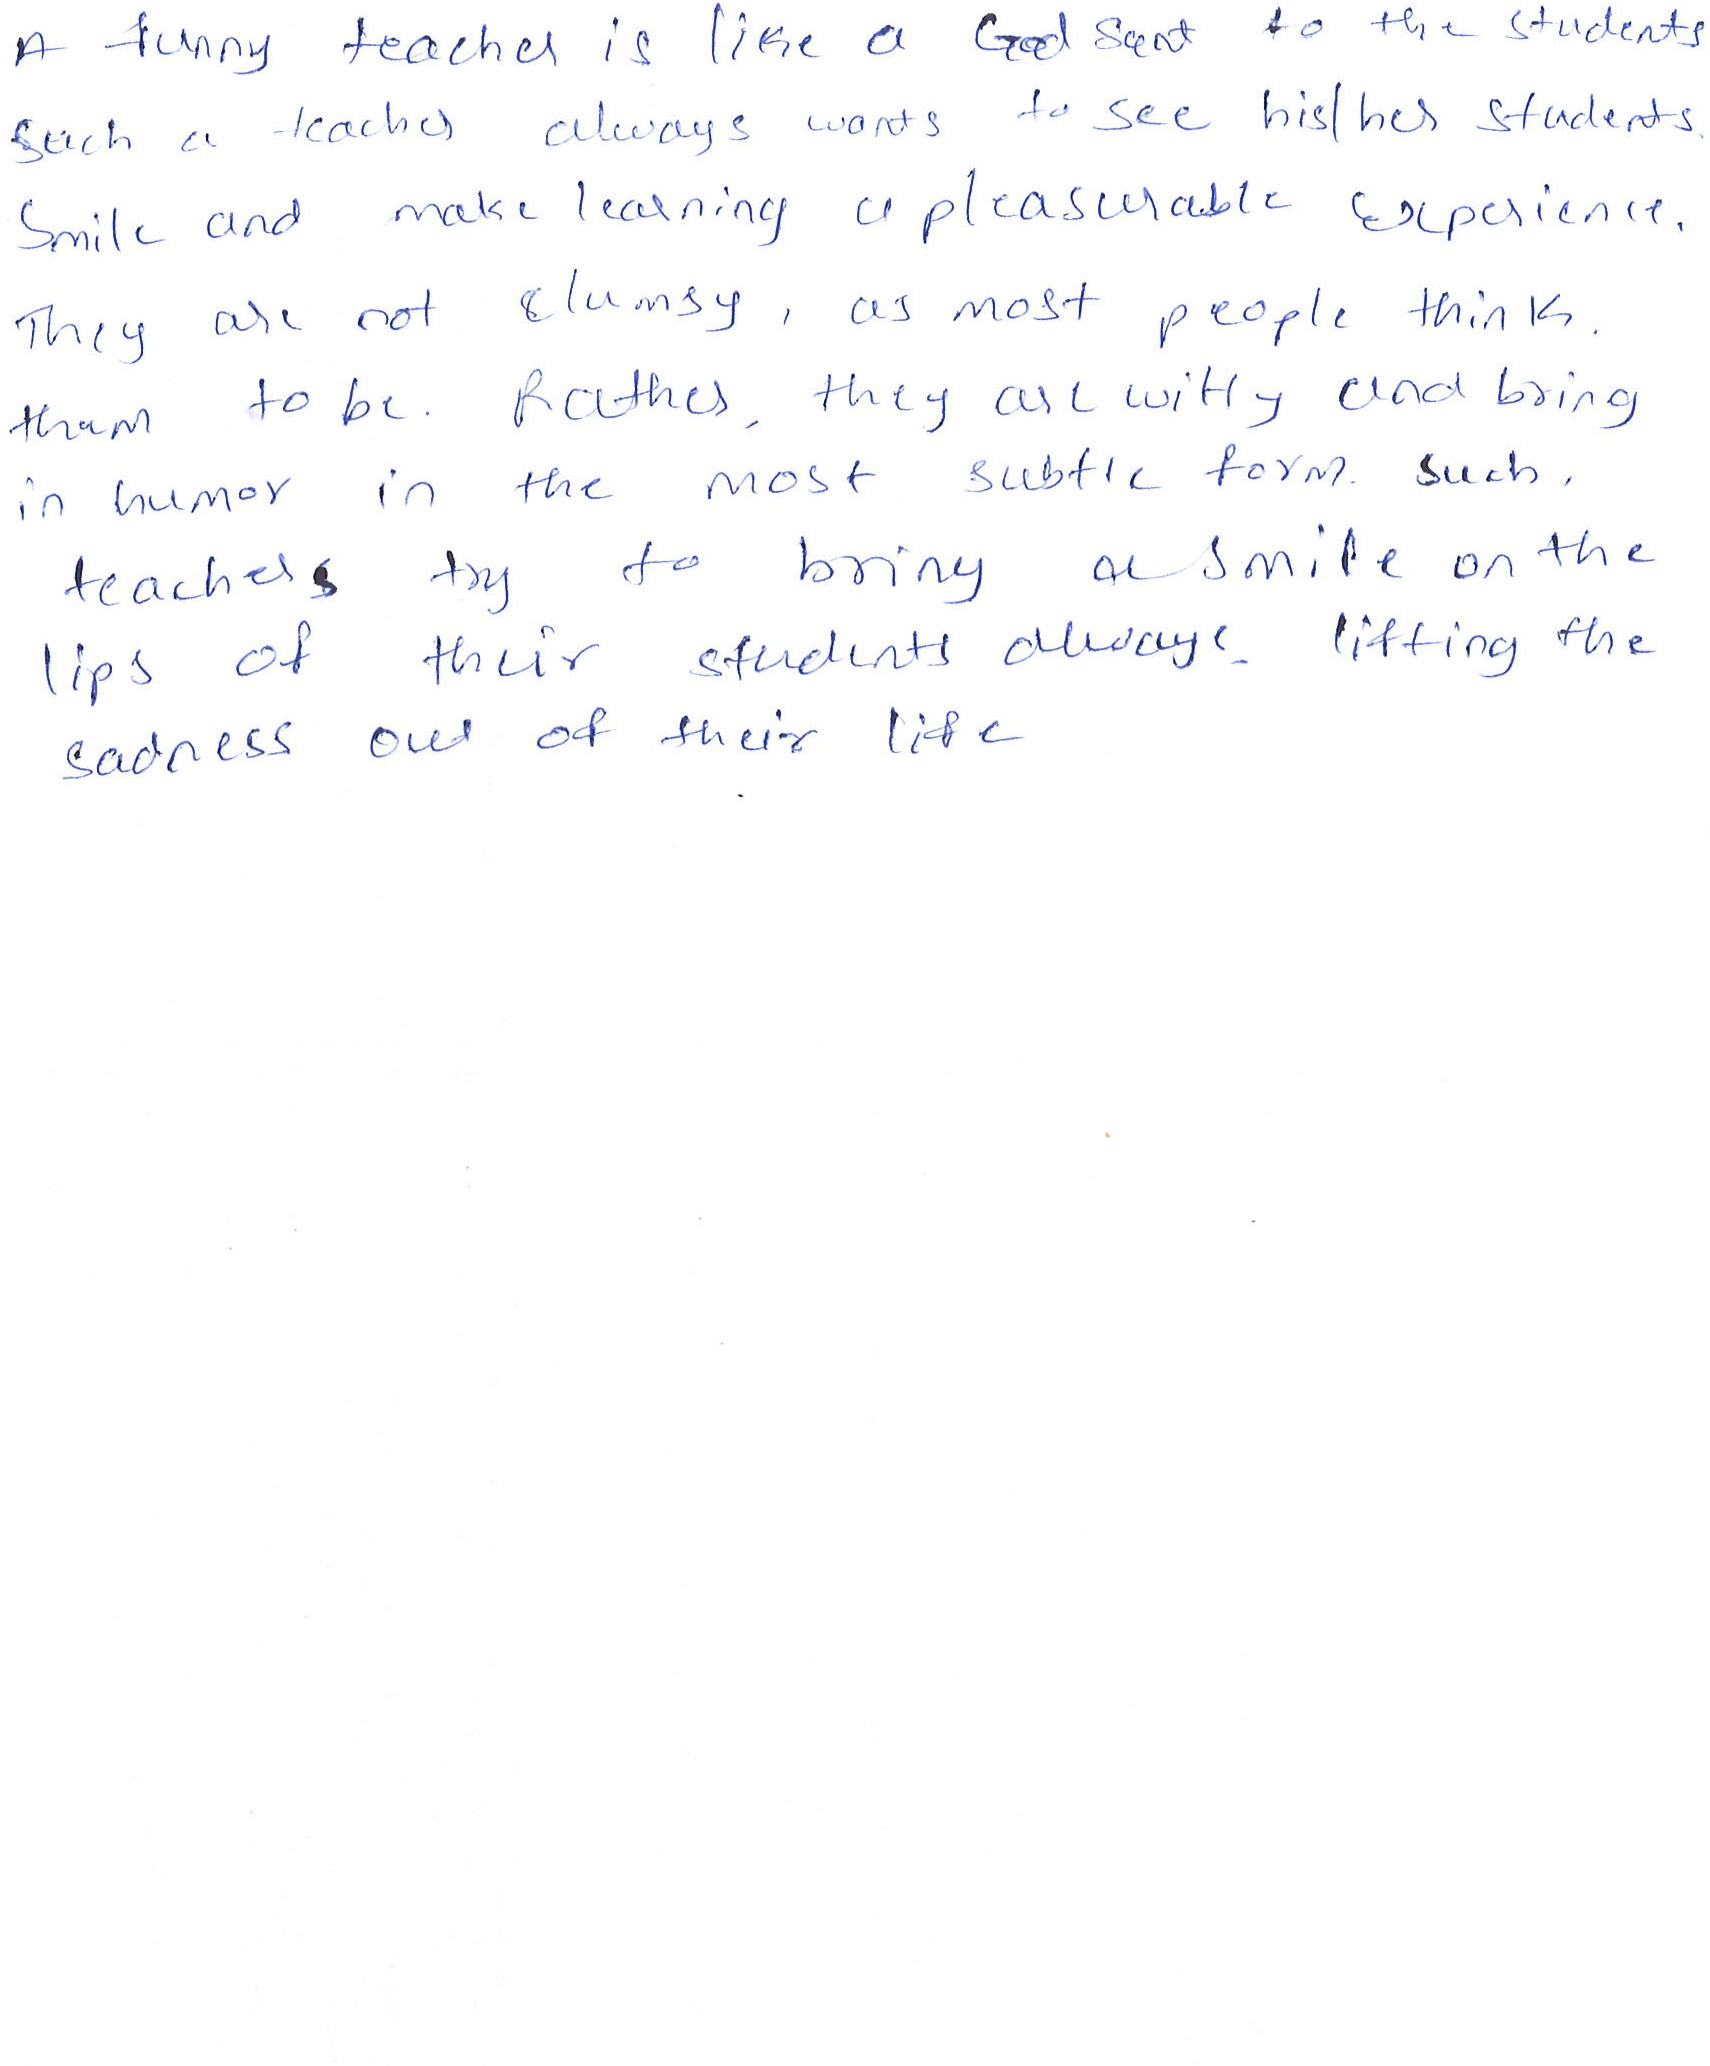 A funny teacher is like a God Sent to the students
such a teacher always wants to see his/her students.
Smile and make learning a pleasurable experience.
They are not clumsy, as most people think.
them to be. Rather, they are witty and bring
in humor in the most subtle form. such,
teachers try to bring a smile on the
lips of their students always lifting the
sadness out of their life